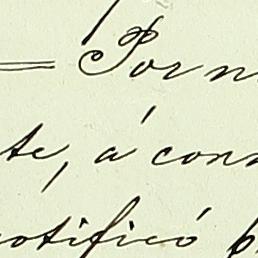 = Por m
te, á con
otificó p